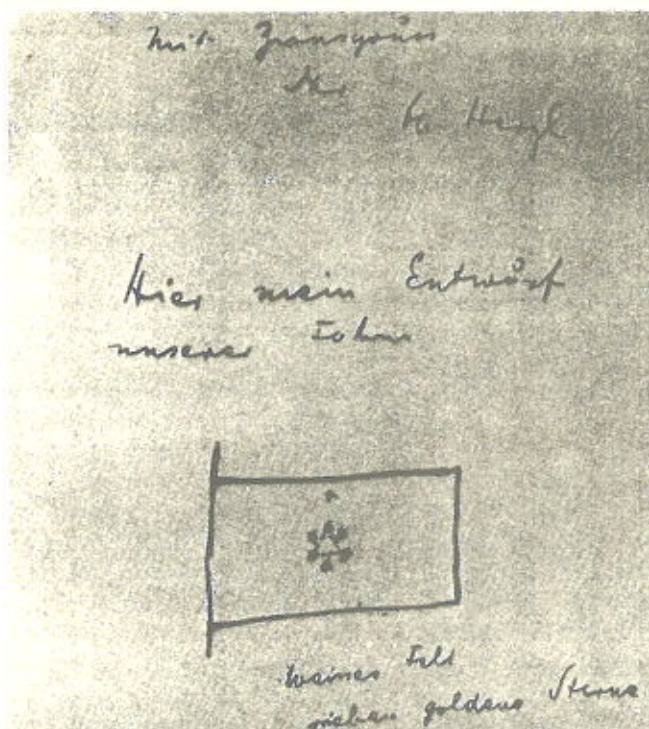 Mit Zionsgruss
Ihr
Th Herzl
Hier mein Entwurf
unserer Fahne
Weisses Feld
sieben goldene Sterne